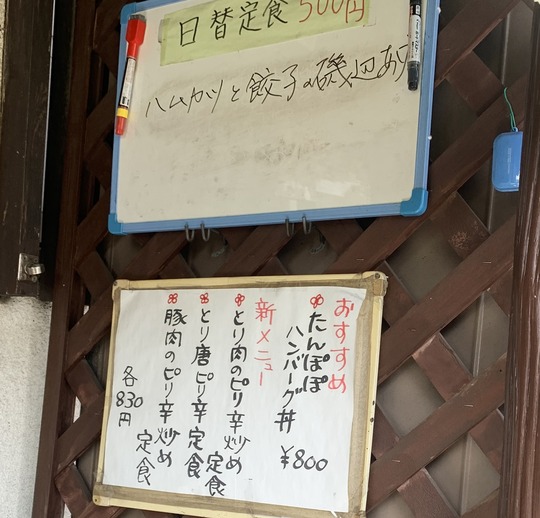 日替定食 500円
ハムカツと餃子の磯辺あげ
おすすめ
たんぽぽ
ハンバーグ丼
¥800
新メニュー
とり肉のピリ辛炒め
定食
とり唐ピリ辛定食
豚肉のピリ辛炒め
定食
各830円